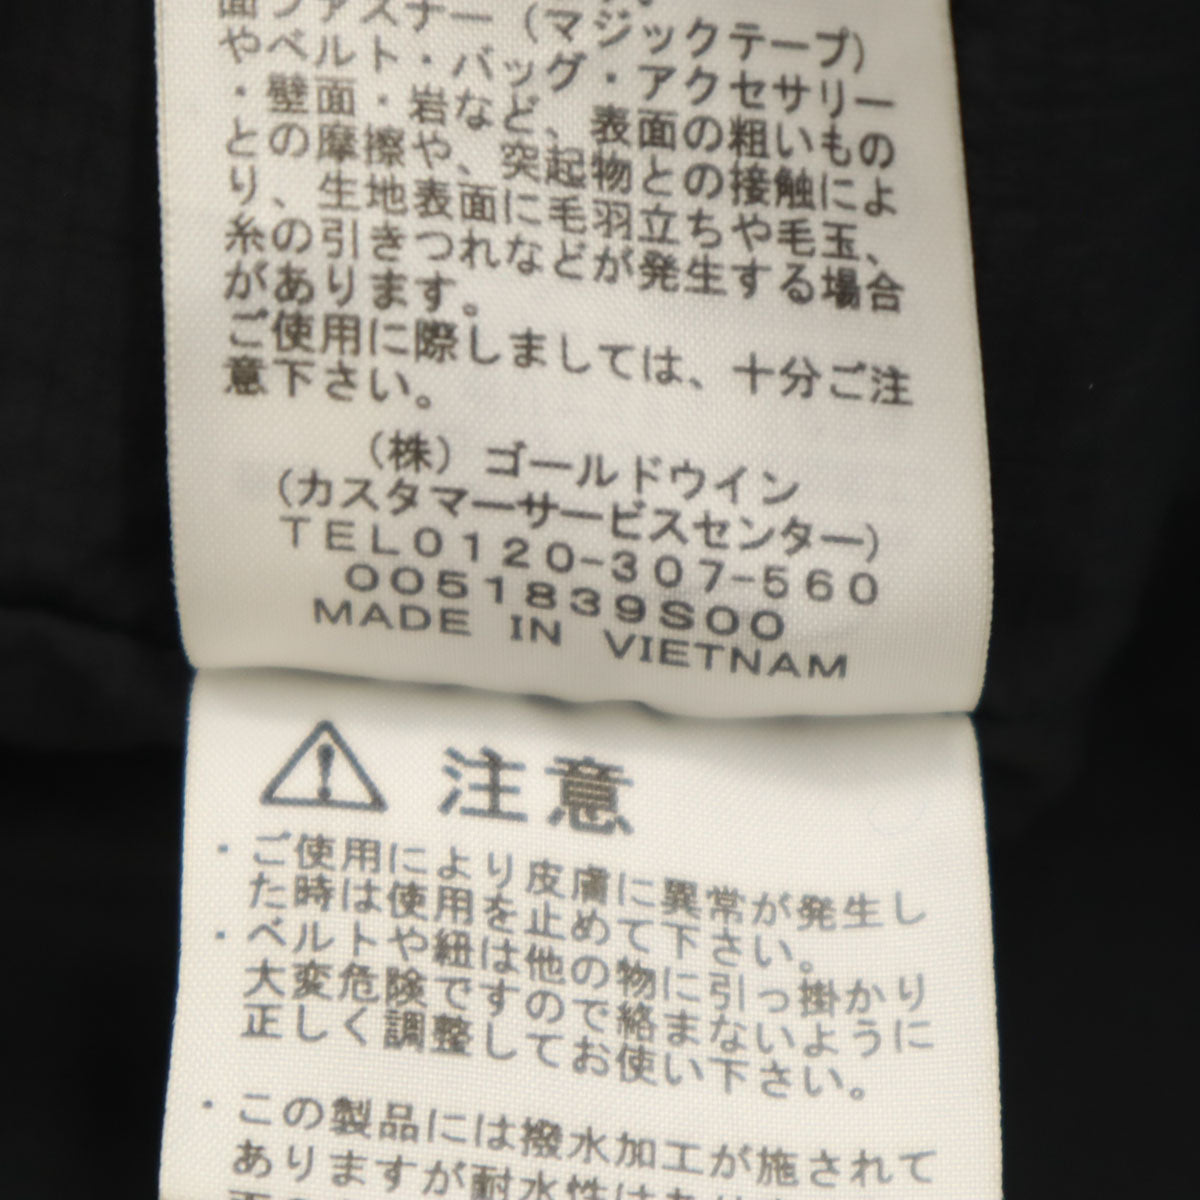 面ファスナー（マジックテープ）
やベルト・バッグ・アクセサリー
・壁面・岩など、表面の粗いもの
との摩擦や、突起物との接触によ
り、生地表面に毛羽立ちや毛玉、
糸の引きつれなどが発生する場合
があります。
ご使用に際しましては、十分ご注
意下さい。
（株）ゴールドウイン
(カスタマーサービスセンター)
TEL0120-307-560
0051839S00
MADE IN VIETNAM
注意
・ご使用により皮膚に異常が発生し
た時は使用を止めて下さい。
・ベルトや紐は他の物に引っ掛かり
大変危険ですので絡まないように
正しく調整してお使い下さい。
・この製品には撥水加工が施されて
ありますが耐水性はあり